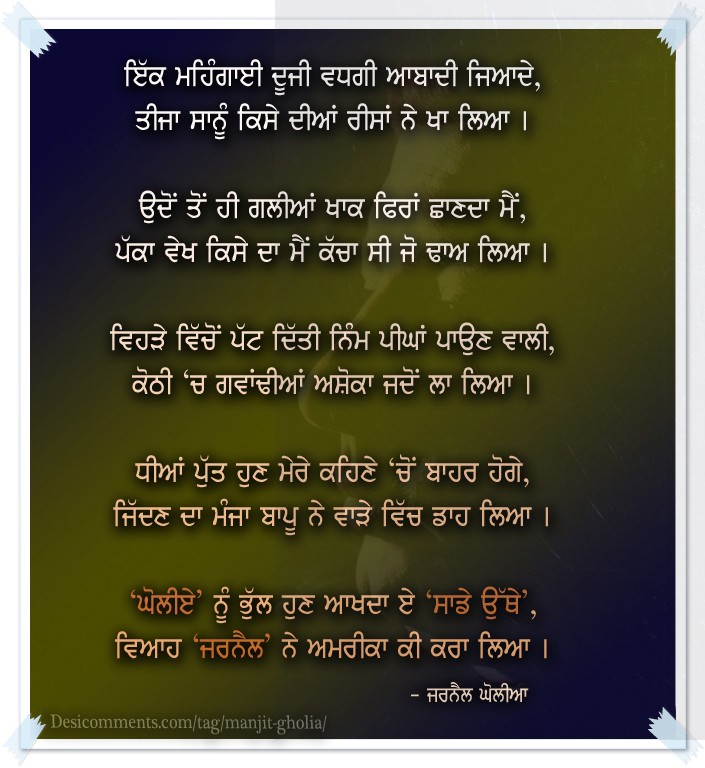 ਇੱਕ ਮਹਿੰਗਾਈ ਦੂਜੀ ਵਧਗੀ ਆਬਾਦੀ ਜਿਆਦੇ,
ਤੀਜਾ ਸਾਨੂੰ ਕਿਸੇ ਦੀਆਂ ਰੀਸਾਂ ਨੇ ਖਾ ਲਿਆ ।
ਉਦੋਂ ਤੋਂ ਹੀ ਗਲੀਆਂ ਖਾਕ ਫਿਰਾਂ ਛਾਣਦਾ ਮੈਂ,
ਪੱਕਾ ਵੇਖ ਕਿਸੇ ਦਾ ਮੈਂ ਕੱਚਾ ਸੀ ਜੋ ਢਾਅ ਲਿਆ ।
ਵਿਹੜੇ ਵਿੱਚੋਂ ਪੱਟ ਦਿੱਤੀ ਨਿੰਮ ਪੀਘਾਂ ਪਾਉਣ ਵਾਲੀ,
ਕੋਠੀ ‘ਚ ਗਵਾਂਢੀਆਂ ਅਸ਼ੋਕਾ ਜਦੋਂ ਲਾ ਲਿਆ ।
ਧੀਆਂ ਪੁੱਤ ਹੁਣ ਮੇਰੇ ਕਹਿਣੇ ‘ਚੋਂ ਬਾਹਰ ਹੋਗੇ,
ਜਿੱਦਣ ਦਾ ਮੰਜਾ ਬਾਪੂ ਨੇ ਵਾੜੇ ਵਿੱਚ ਡਾਹ ਲਿਆ ।
‘ਘੋਲੀਏ’ ਨੂੰ ਭੁੱਲ ਹੁਣ ਆਖਦਾ ਏ ‘ਸਾਡੇ ਉੱਥੇ’,
ਵਿਆਹ ‘ਜਰਨੈਲ’ ਨੇ ਅਮਰੀਕਾ ਕੀ ਕਰਾ ਲਿਆ ।
– ਜਰਨੈਲ ਘੋਲੀਆ
Desicomments.com/tag/manjit-gholia/